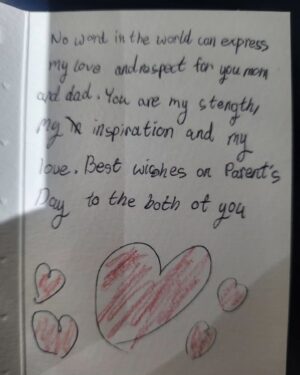 No word in the world can express
my love and respect for you mom
and dad. You are my stength,
my inspiration and my
love. Best wishes on Parent's
Day to the both of you